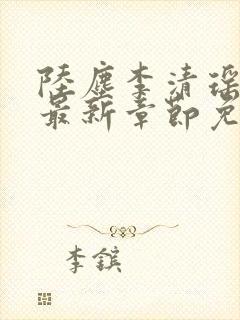 陸塵李清瑶
最新章節免
李鎮